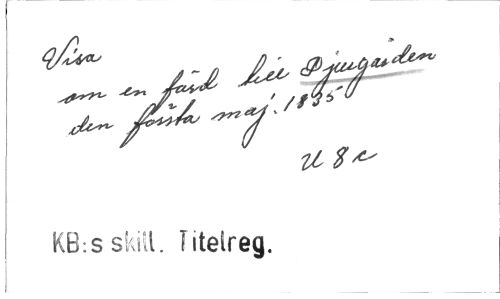 Visa
om en färd till Djurgården
den första maj. 1835
U 8 c
KB:s skill. Titelreg.